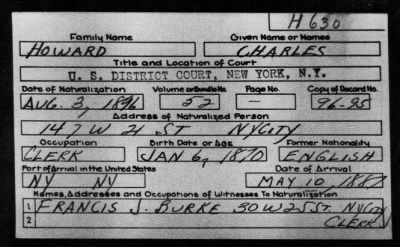 H 630
Family Name Given Name or Names
HOWARD CHARLES
Title and Location of Court
U. S. DISTRICT COURT, NEW YORK, N.Y.
Date of Naturalization Volume or Bundle No. Page No. Copy of Record No.
AUG. 3, 1896 52 — 96-95
Address of Naturalized Person
147 W 21 ST NYCITY
Occupation Birth Date or Age Former Nationality
CLERK JAN 6, 1870 ENGLISH
Port of Arrival in the United States Date of Arrival
NY NY MAY 10, 1887
Names, Addresses and Occupations of Witnesses To Naturalization
1 FRANCIS J. BURKE 30 W 25 ST. NYCITY
2 CLERK